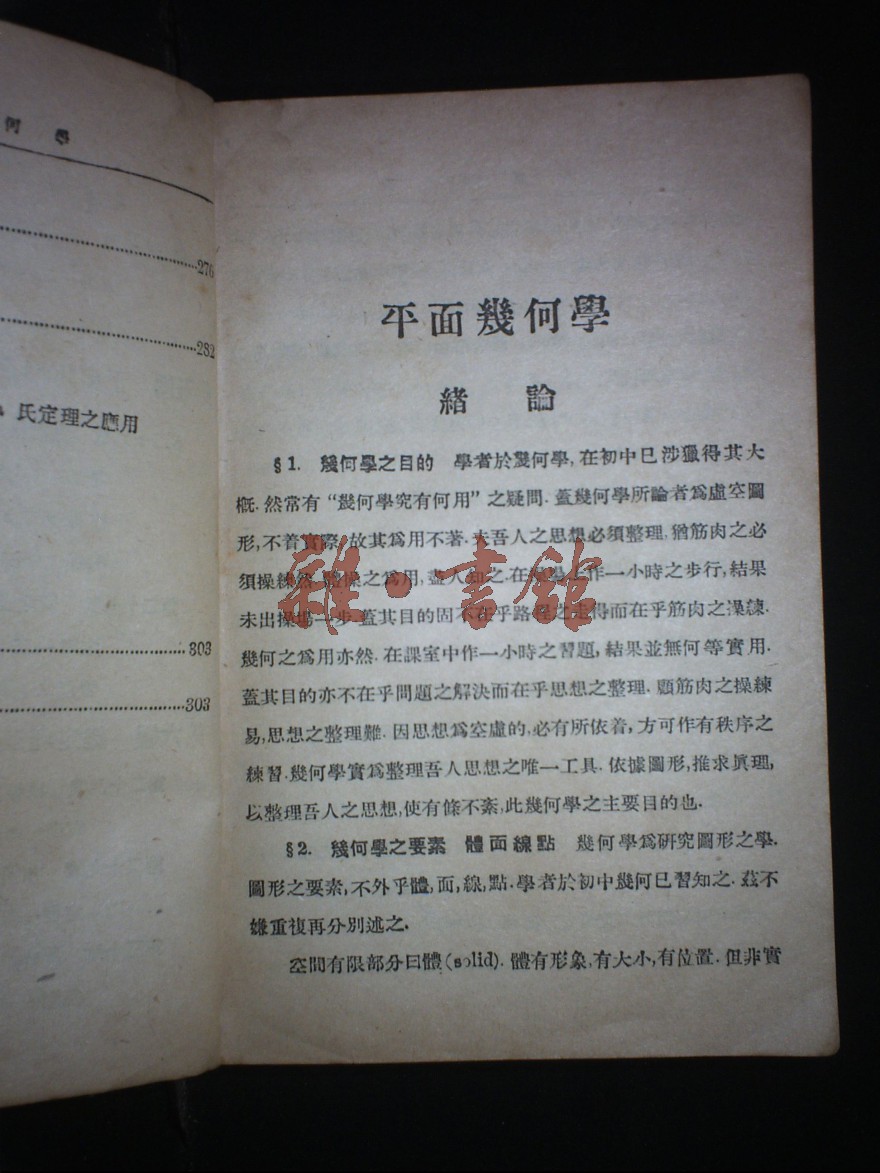 何學
276
282
氏定理之應用
303
303
平面幾何學
緒論
§1. 幾何學之目的 學者於幾何學,在初中已涉獵得其大
概.然常有“幾何學究有何用”之疑問.蓋幾何學所論者爲虛空圖
形,不着實際,故其爲用不著.夫吾人之思想必須整理,猶筋肉之必
須操練然.體操之爲用,盡人知之.在操場上作一小時之步行,結果
未出操場一步.蓋其目的固不在乎路程之走得而在乎筋肉之操練.
幾何之爲用亦然.在課室中作一小時之習題,結果並無何等實用.
蓋其目的亦不在乎問題之解決而在乎思想之整理.顧筋肉之操練
易,思想之整理難.因思想爲空虛的,必有所依着,方可作有秩序之
練習.幾何學實爲整理吾人思想之唯一工具.依據圖形,推求眞理,
以整理吾人之思想,使有條不紊,此幾何學之主要目的也.
§2. 幾何學之要素 體面線點 幾何學爲研究圖形之學.
圖形之要素,不外乎體,面,線,點.學者於初中幾何已習知之.茲不
嫌重複再分別述之.
空間有限部分曰體(solid).體有形象,有大小,有位置.但非實
雜·書館